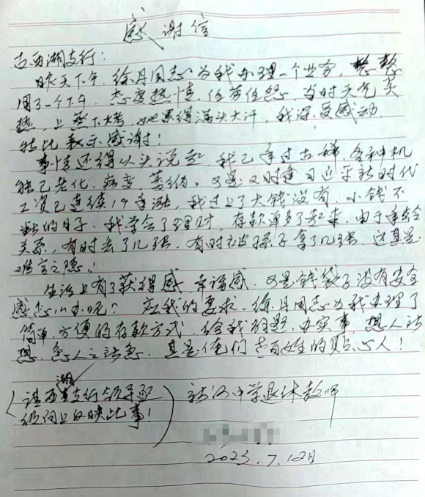 感谢信
古西湖支行:
昨天下午,徐丹同志为我办理一个业务,整整
用了一个下午。态度热情,任劳任怨。当时天气炎
热,上蒸下烤,她累得满头大汗,我深受感动,
特此表示感谢!
事情还得从头说起。我已年过古稀,各种机
能已老化,病变,萎缩。又是
工资已连续19年涨。我过上了大钱没有,小钱不
断的日子。我学会了理财,存款渐多了起来,由于年龄
关系,有时丢了几张,有时被孙子拿了几张,这真是
难言之隐。
生活上有了获得感、幸福感,可是钱袋子没有安全
感怎么办呢?应我的要求,徐丹同志为我办理了
简单、方便的存款方式,给我解难题,办实事,想人所
想,急人之所急,真是俺们老百姓的贴心人!
(请西湖支行领导
级向上反映此事!)
中学退休教师
2023.7.12日